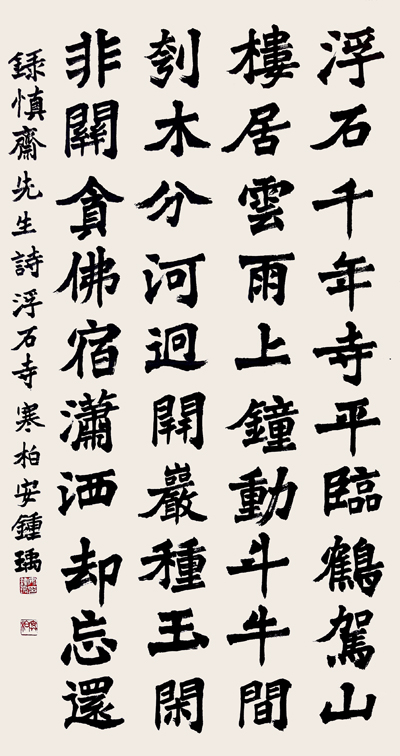 浮石千年寺平臨鶴駕山
樓居雲雨上鐘動斗牛間
刳木分河迥開巖種玉閑
非關貪佛宿瀟洒却忘還
錄慎齋先生詩浮石寺寒柏安鍾瑀